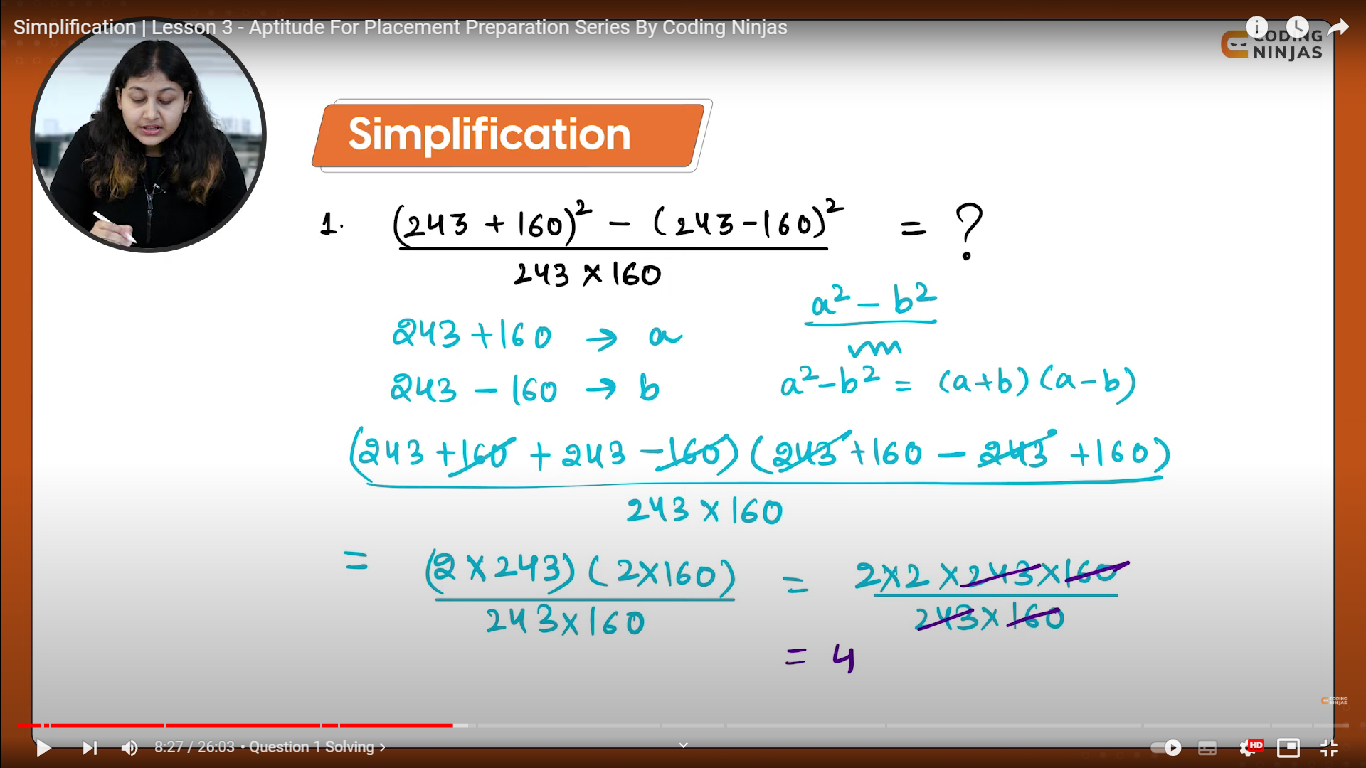 Simplification | Lesson 3 - Aptitude For Placement Preparation Series By Coding Ninjas
CODING
NINJAS
Simplification
1. (243 + 160)² − (243 − 160)² = ?
243 × 160
243 + 160 → a
a² − b²
m
243 − 160 → b
a² − b² = (a+b) (a−b)
(243 + 160 + 243 − 160) (243 + 160 − 243 + 160)
243 × 160
= (2 × 243) (2 × 160) = 2×2 × 243 × 160
243 × 160 243 × 160
= 4
8:27 / 26:03 • Question 1 Solving ›
HD